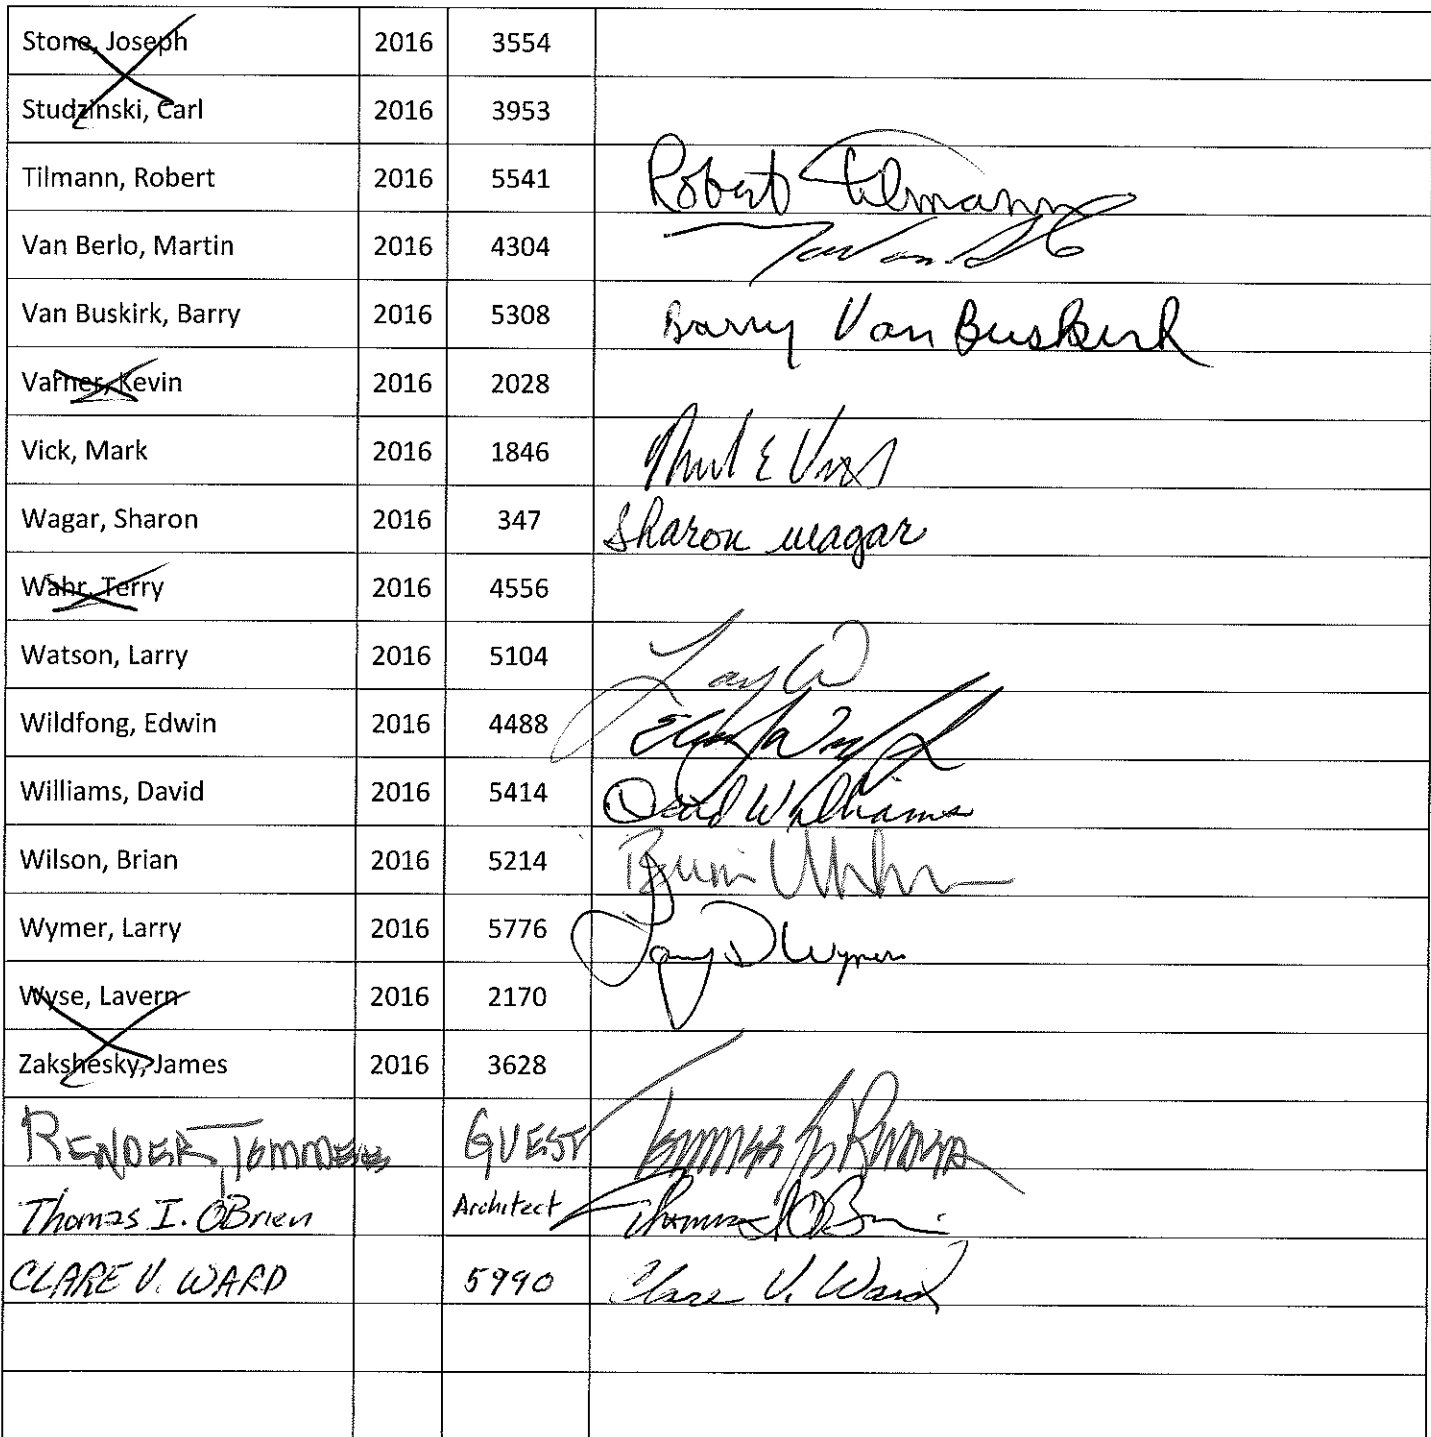 Stone, Joseph 2016 3554
Studzinski, Carl 2016 3953
Tilmann, Robert 2016 5541 Robert Tilmann
Van Berlo, Martin 2016 4304
Van Buskirk, Barry 2016 5308 Barry Van Buskirk
Varner, Kevin 2016 2028
Vick, Mark 2016 1846
Wagar, Sharon 2016 347 Sharon Wagar
Wahr, Terry 2016 4556
Watson, Larry 2016 5104
Wildfong, Edwin 2016 4488
Williams, David 2016 5414 David Williams
Wilson, Brian 2016 5214
Wymer, Larry 2016 5776 Larry D Wymer
Wyse, Lavern 2016 2170
Zakshesky, James 2016 3628
RENDER, GUEST
Thomas I. O'Brien Architect Thomas I O'Brien
CLARE V. WARD 5990 Clare V. Ward